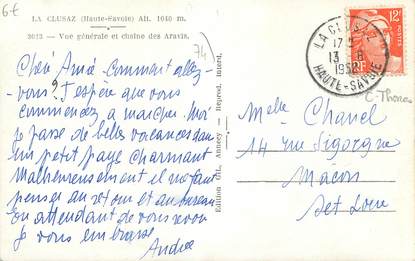 6f
LA CLUSAZ (Haute-Savoie) Alt. 1040 m.
3023 — Vue générale et chaîne des Aravis.
74
Chère Amie Comment allez-
vous? J'espère que vous
commencez a marcher. Moi
je passe de belles vacances dans
un petit pays charmant
Malheureusement il va faut
penser au retour et au bureau
En attendant de vous revoir
je vous embrasse
Andrée
Edition Gil. Annecy — Reprod. interd.
LA CLUSAZ
13 - 8
1952
HAUTE-SAVOIE
12F
POSTES
Melle Chanel
14 rue Sigorgne
Macon
Set Loire